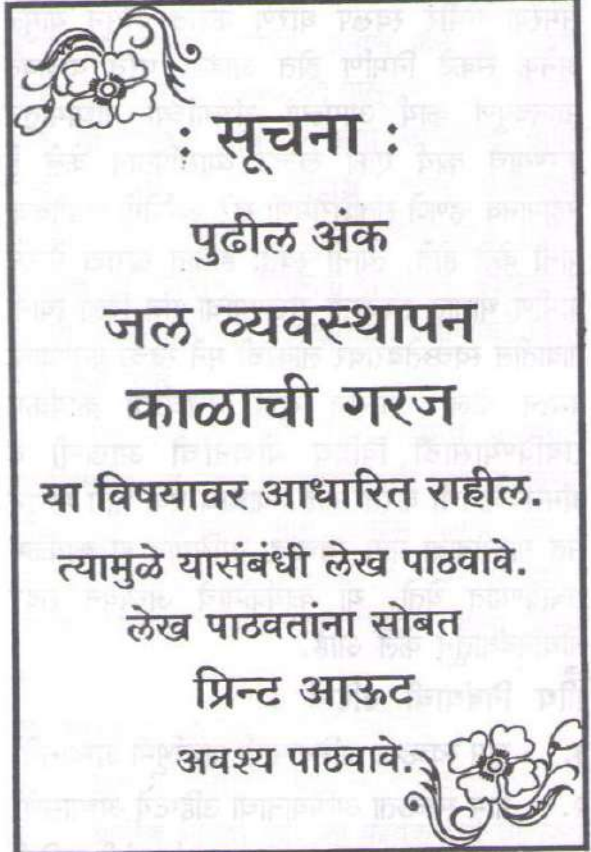 : सूचना :
पुढील अंक
जल व्यवस्थापन
काळाची गरज
या विषयावर आधारित राहील.
त्यामुळे यासंबंधी लेख पाठवावे.
लेख पाठवतांना सोबत
प्रिन्ट आऊट
अवश्य पाठवावे.